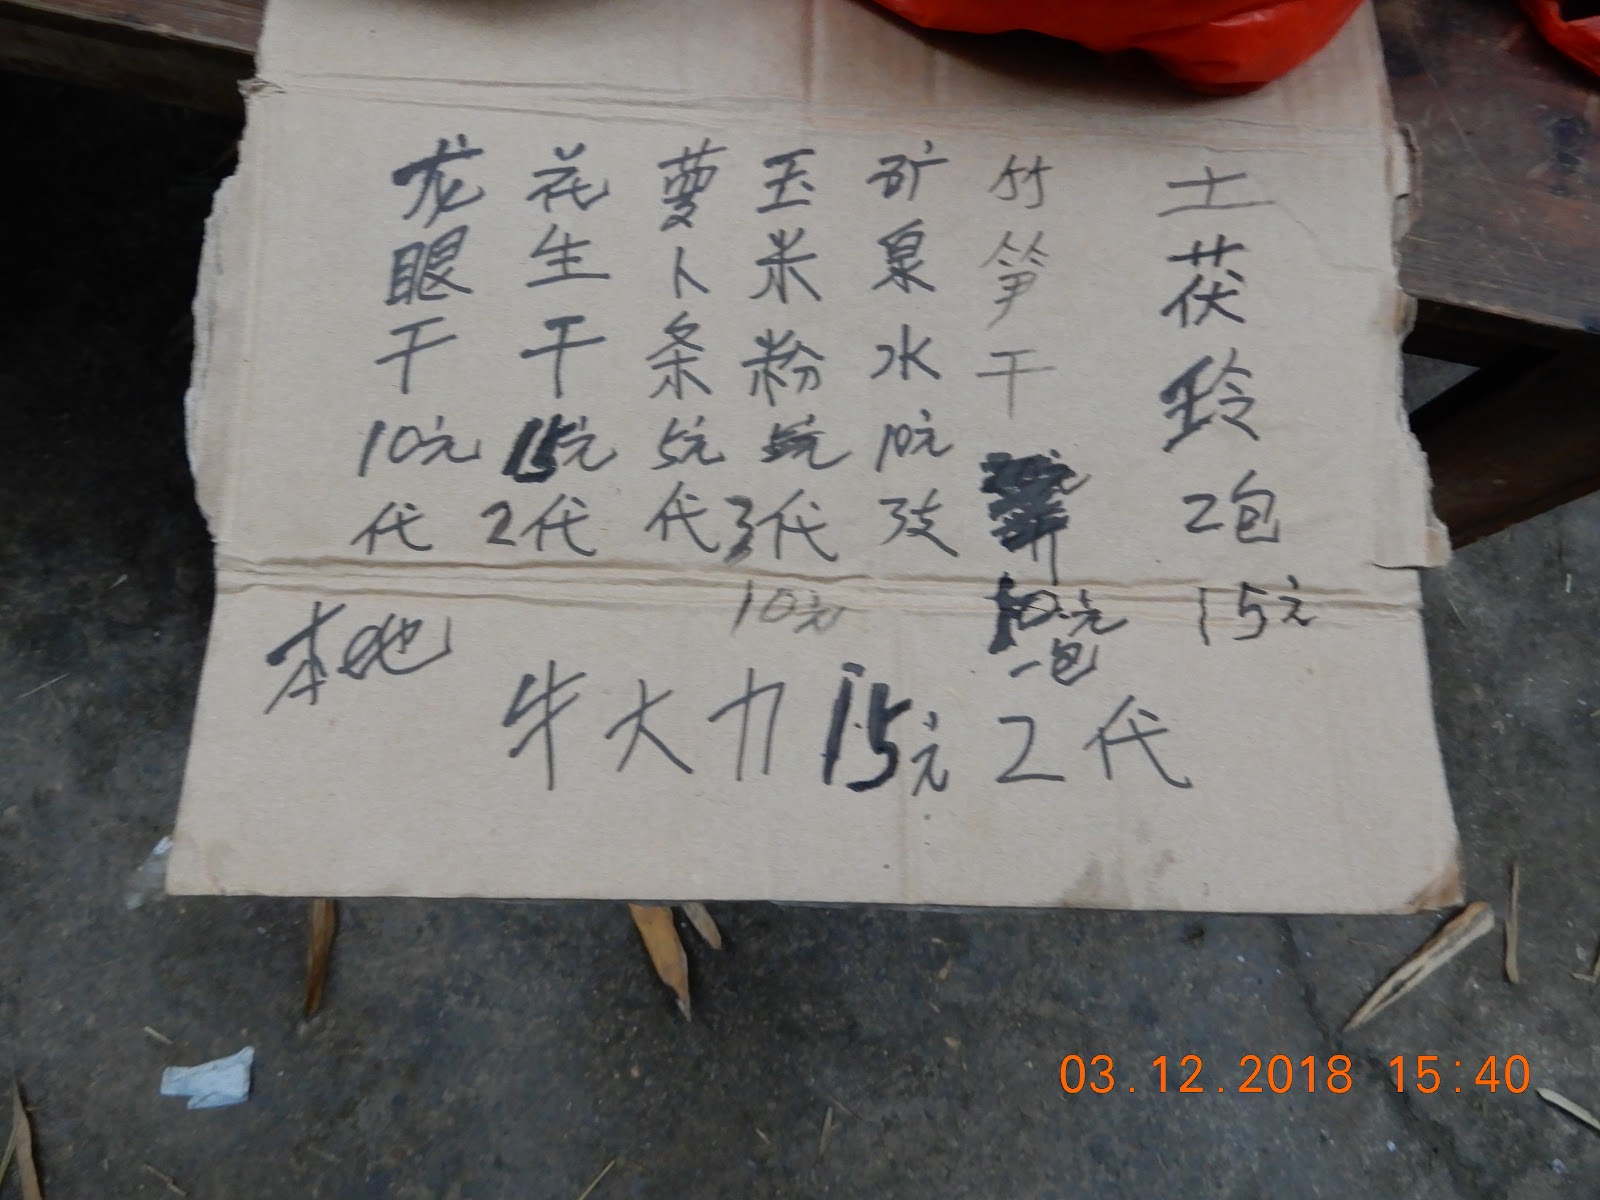 龙眼干10元代
花生干15元2代
萝卜条5元代
玉米粉3代10元
矿泉水10元3支
竹笋干10元一包
土茯玲2包15元
本地
牛大力15元2代
03.12.2018 15:40